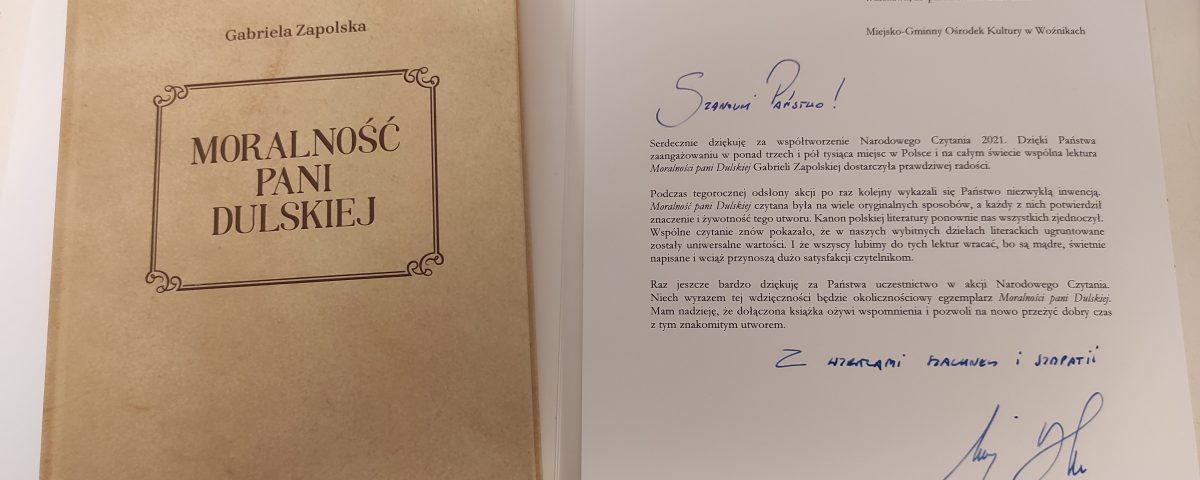 Gabriela Zapolska
MORALNOŚĆ
PANI
DULSKIEJ
Miejsko-Gminny Ośrodek Kultury w Woźnikach
Szanowni Państwo!
Serdecznie dziękuję za współtworzenie Narodowego Czytania 2021. Dzięki Państwa
zaangażowaniu w ponad trzech i pół tysiąca miejsc w Polsce i na całym świecie wspólna lektura
Moralności pani Dulskiej Gabrieli Zapolskiej dostarczyła prawdziwej radości.
Podczas tegorocznej odsłony akcji po raz kolejny wykazali się Państwo niezwykłą inwencją.
Moralność pani Dulskiej czytana była na wiele oryginalnych sposobów, a każdy z nich potwierdził
znaczenie i żywotność tego utworu. Kanon polskiej literatury ponownie nas wszystkich zjednoczył.
Wspólne czytanie znów pokazało, że w naszych wybitnych dziełach literackich ugruntowane
zostały uniwersalne wartości. I że wszyscy lubimy do tych lektur wracać, bo są mądre, świetnie
napisane i wciąż przynoszą dużo satysfakcji czytelnikom.
Raz jeszcze bardzo dziękuję za Państwa uczestnictwo w akcji Narodowego Czytania.
Niech wyrazem tej wdzięczności będzie okolicznościowy egzemplarz Moralności pani Dulskiej.
Mam nadzieję, że dołączona książka ożywi wspomnienia i pozwoli na nowo przeżyć dobry czas
z tym znakomitym utworem.
Z wyrazami szacunku i sympatii